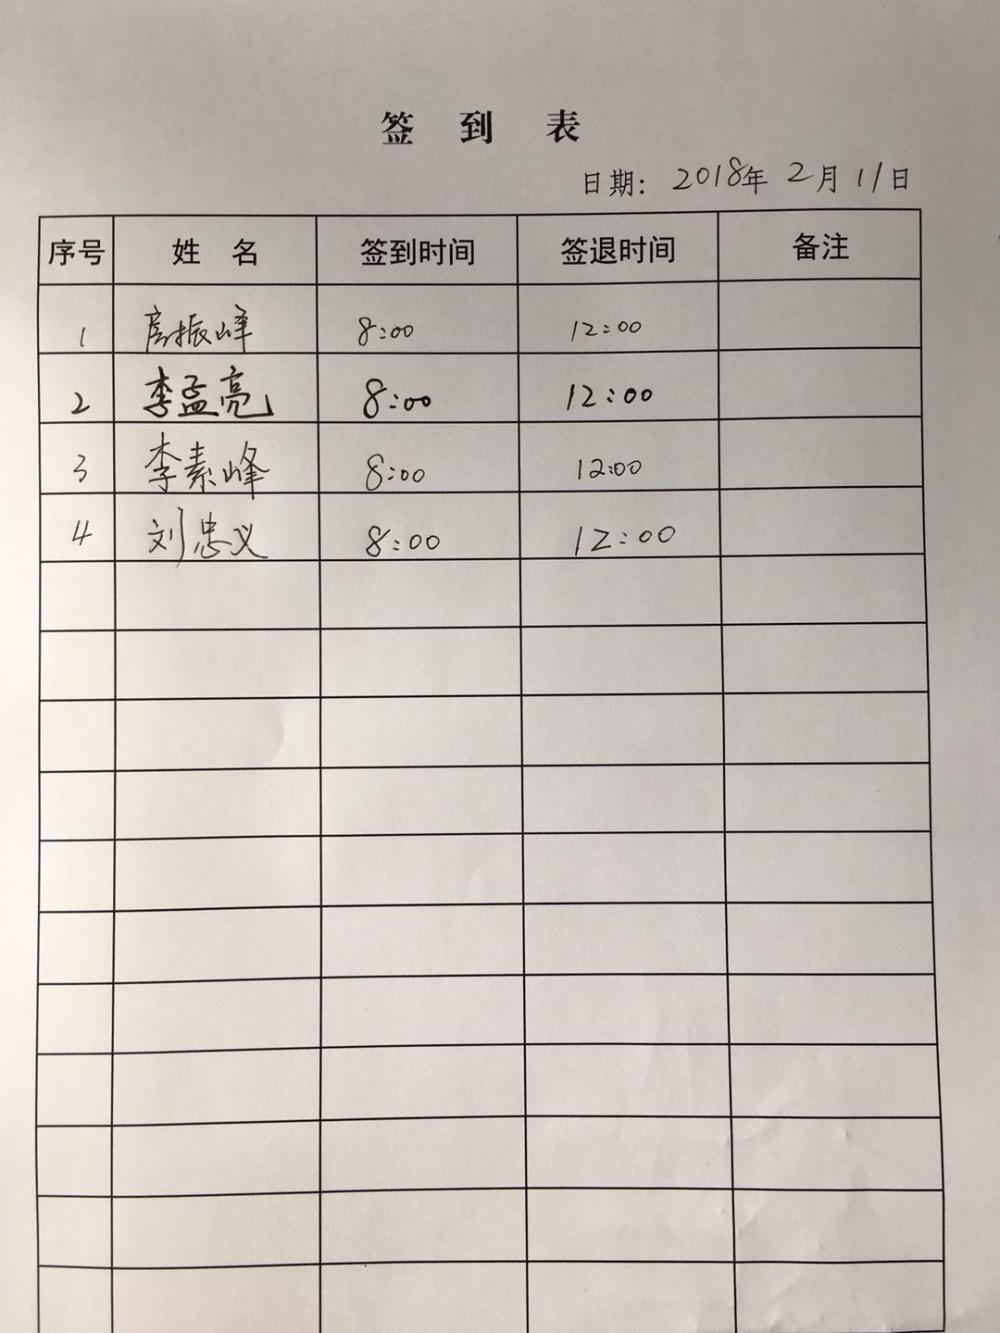 签 到 表
日期: 2018年 2月 11日
序号 姓 名 签到时间 签退时间 备注
1 房振峰 8:00 12:00
2 李孟亮 8:00 12:00
3 李素峰 8:00 12:00
4 刘忠义 8:00 12:00